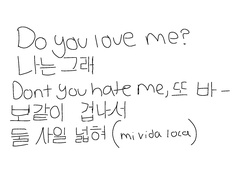 Do you love me?
나는 그래
Dont you hate me, 또 바-
보같이 겁나서
둘 사일 넓혀 (mi vida loca)